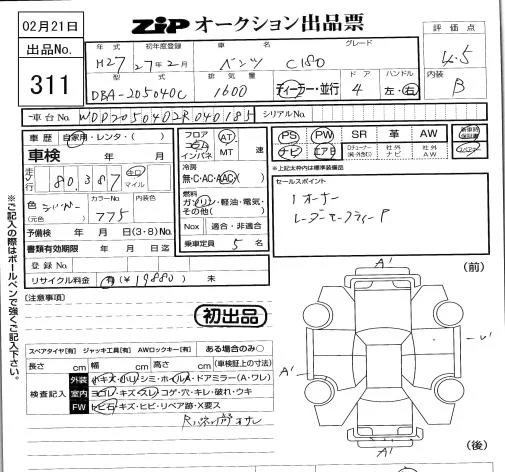 02月21日
ZIP オークション出品票
評価点
出品No.
311
年式 初年度登録 車名 グレード
H27 27年2月 ベンツ C180
4.5
型式 排気量 ドア ハンドル
DBA-205040C 1600 ディーラー・並行 4 左・右
内装
B
車台No. WDD2050402R040185 シリアルNo.
車歴 自家用・レンタ・( )
フロア コラム インパネ AT MT 速
PS PW SR 革 AW 新車時保証書
ナビ エアB 社外ナビ 社外AW
車検 年 月
※上記太枠内は標準装備品
走行 80,387 キロ マイル
冷房
無・C・AC・AAC
セールスポイント
1オーナー
レーダーセーフティーP
色 (元色) シルバー カラーNo. 775 内装色
燃料
ガソリン・軽油・電気・その他( )
予備検 年 月 日(3・8)
Nox 適合・非適合
書類有効期限 年 月 日迄
乗車定員 5 名
登録No.
リサイクル料金 有(¥19880) 未
(前)
A'
[注意事項]
初出品
※ご記入の際はボールペンで強くご記入下さい。
A'
スペアタイヤ[有] ジャッキ工具[有] AWロックキー[有] ある場合のみ○
長さ cm 幅 cm 高さ cm (車検証上の寸法)
検査記入
外装 小キズ・小凹・シミ・ホイルA・ドアミラー(A・ワレ)
室内 ヨゴレ・キズ・スレ・コゲ・穴・キレ・破れ・ウキ
FW ヒビ石・キズ・ヒビ・リペア跡・X要ス
A'
(後)